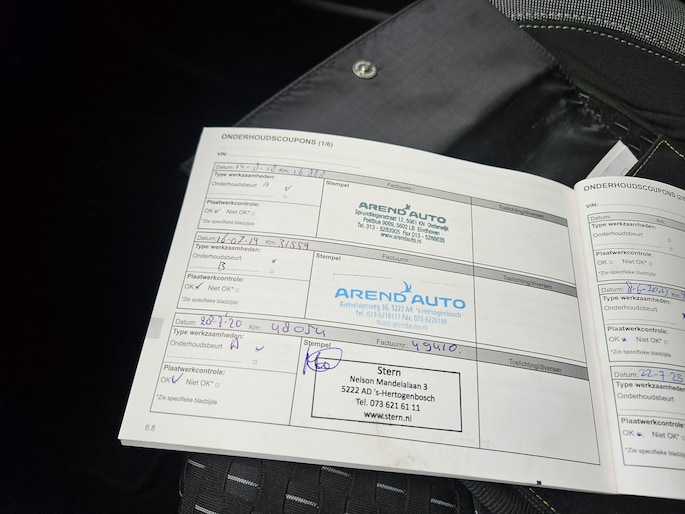 ONDERHOUDSCOUPONS (1/6)
VIN:
Datum: Km:
Type werkzaamheden:
Onderhoudsbeurt A
Plaatwerkcontrole:
OK Niet OK*
*Zie specifieke bladzijde
Stempel Factuurnr.:
AREND AUTO
Sprundlingenstraat 12, 5061 KN Oisterwijk
Postbus 9099, 5602 LB Eindhoven
Tel. 013 - 5283905 Fax 013 - 5288635
www.arendauto.nl
Toelichting/diversen
Datum: 16-07-19 Km: 31559
Type werkzaamheden:
Onderhoudsbeurt
B
Plaatwerkcontrole:
OK Niet OK*
*Zie specifieke bladzijde
Stempel Factuurnr.:
AREND AUTO
Rietveldenweg 36, 5222 AR 's-Hertogenbosch
Toelichting/diversen
Datum: 20-7-20 Km: 48054
Type werkzaamheden:
Onderhoudsbeurt A
Plaatwerkcontrole:
OK Niet OK*
*Zie specifieke bladzijde
Stempel Factuurnr.: 49410.
Stern
Nelson Mandelalaan 3
5222 AD 's-Hertogenbosch
Tel. 073 621 61 11
www.stern.nl
Toelichting/diversen
6.8
ONDERHOUDSCOUPONS
VIN:
Datum: Km:
Type werkzaamheden:
Onderhoudsbeurt
Plaatwerkcontrole:
OK Niet OK*
*Zie specifieke bladzijde
Datum:
Type werkzaamheden:
Onderhoudsbeurt
Plaatwerkcontrole:
OK Niet OK*
*Zie specifieke bladzijde
Datum: 22-7-25
Type werkzaamheden:
Onderhoudsbeurt
Plaatwerkcontrole:
OK Niet OK*
*Zie specifieke bladzijde